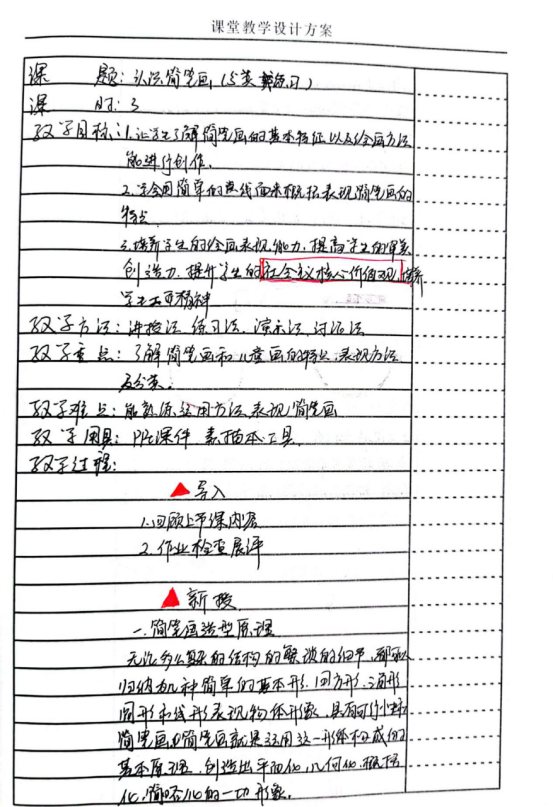 课堂教学设计方案
课 题：认识简笔画（分类 练习）
课 时：3
教学目标：1.让学生了解简笔画的基本特征以及绘画方法
能进行创作。
2.学会用简单的点线面来概括表现简笔画的
特点
3.培养学生的绘画表现能力，提高学生的审美
创造力，提升学生的社会主义核心价值观，培养
学生工匠精神
教学方法：讲授法 练习法、演示法、讨论法
教学重点：了解简笔画和儿童画的特点、表现方法
及分类。
教学难点：能熟练运用方法表现简笔画
教学用具：PPT课件 素描本 工具
教学过程：
导入
1.回顾上节课内容
2.作业检查展评
新授
一.简笔画造型原理
无论多么复杂的结构的繁琐的细节，都可以
归纳为几种简单的基本形，方形、三角形
圆形和线形表现物体形象，具有
简笔画 简笔画就是运用这一形体构成的
基本原理，创造出平面化，几何化，概括
化，简略化的一切形象。